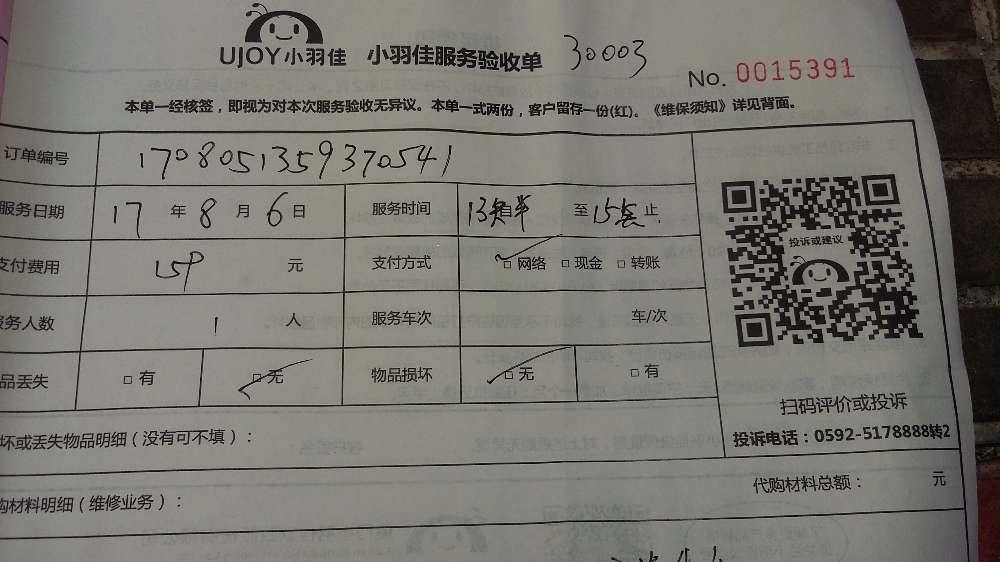 UJOY小羽佳 小羽佳服务验收单 30003
No. 0015391
本单一经核签，即视为对本次服务验收无异议。本单一式两份，客户留存一份(红)。《维保须知》详见背面。
订单编号 1708051359370541
服务日期 17 年 8 月 6 日 服务时间 13 半 至 15 止
支付费用 元 支付方式 □ 网络 □ 现金 □ 转账
投诉或建议
服务人数 1 人 服务车次 车/次
品丢失 □ 有 □ 无 物品损坏 □ 无 □ 有
扫码评价或投诉
坏或丢失物品明细（没有可不填）： 投诉电话：0592-5178888转2
购材料明细（维修业务）： 代购材料总额： 元